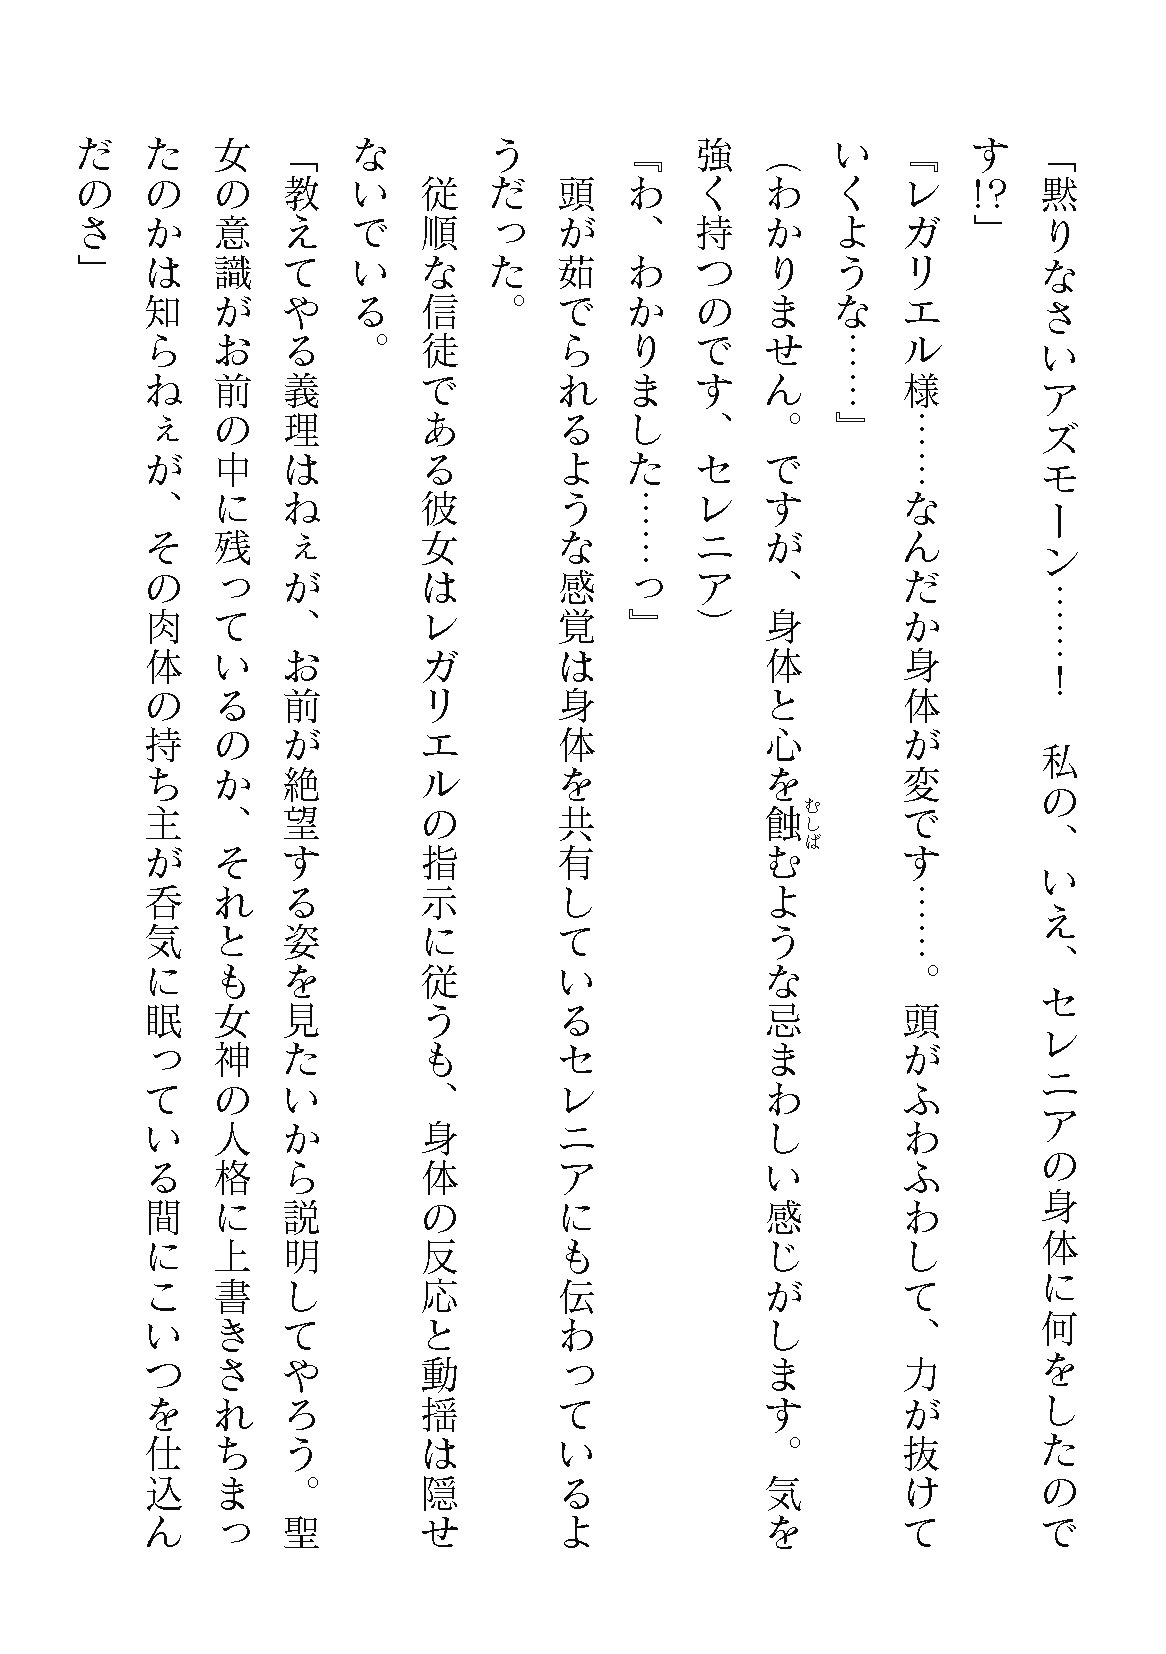 「黙りなさいアズモーン……！　私の、いえ、セレニアの身体に何をしたので
す!?」
『レガリエル様……なんだか身体が変です……。頭がふわふわして、力が抜けて
いくような……』
（わかりません。ですが、身体と心を蝕むような忌まわしい感じがします。気を
むしば
強く持つのです、セレニア）
『わ、わかりました……っ』
　頭が茹でられるような感覚は身体を共有しているセレニアにも伝わっているよ
うだった。
　従順な信徒である彼女はレガリエルの指示に従うも、身体の反応と動揺は隠せ
ないでいる。
「教えてやる義理はねぇが、お前が絶望する姿を見たいから説明してやろう。聖
女の意識がお前の中に残っているのか、それとも女神の人格に上書きされちまっ
たのかは知らねぇが、その肉体の持ち主が呑気に眠っている間にこいつを仕込ん
だのさ」